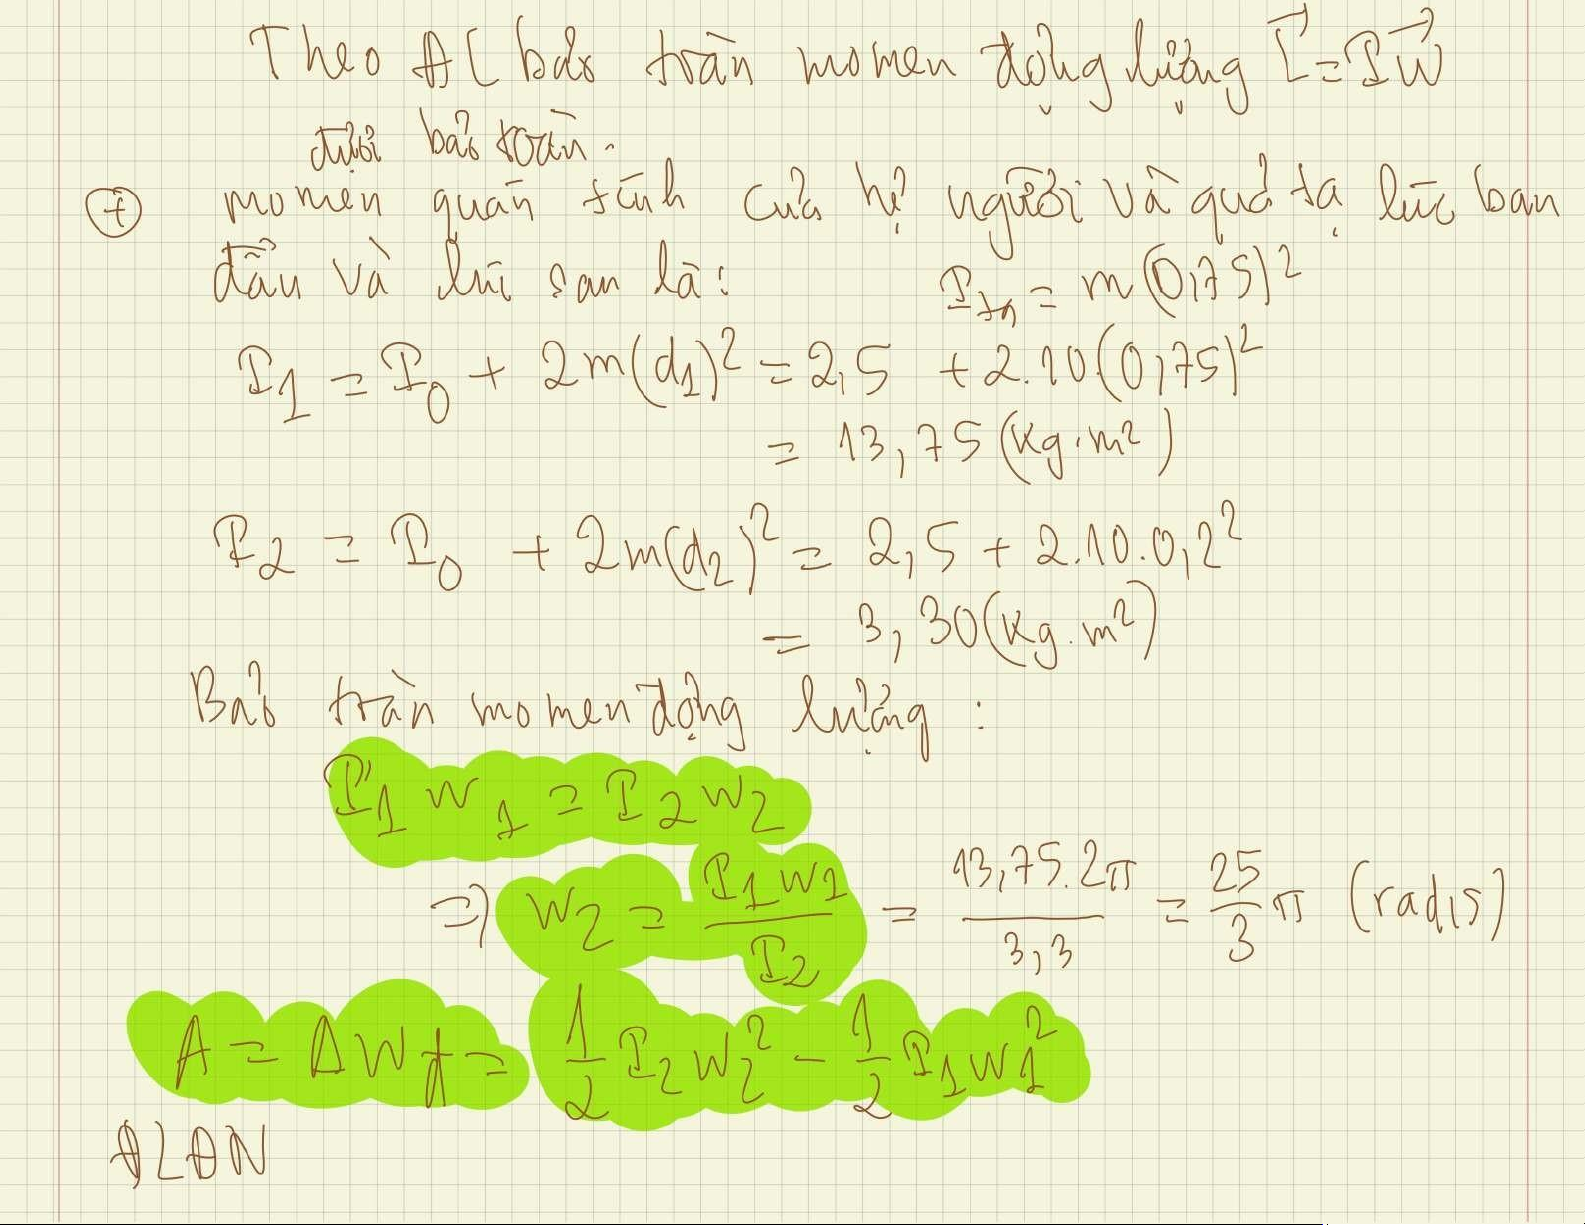 Theo ĐL bảo toàn momen động lượng L⃗ = Iω⃗
được bảo toàn.
(+) momen quán tính của hệ người và quả tạ lúc ban
đầu và lúc sau là: I_tạ = m(0,75)²
I₁ = I₀ + 2m(d₁)² = 2,5 + 2.10.(0,75)²
= 13,75 (kg.m²)
I₂ = I₀ + 2m(d₂)² = 2,5 + 2.10.0,2²
= 3,30 (kg.m²)
Bảo toàn momen động lượng :
I₁w₁ = I₂w₂
=> w₂ = I₁w₁ / I₂ = 13,75.2π / 3,3 = 25/3 π (rad/s)
A = ΔWđ = 1/2 I₂w₂² - 1/2 I₁w₁²
ĐLĐN